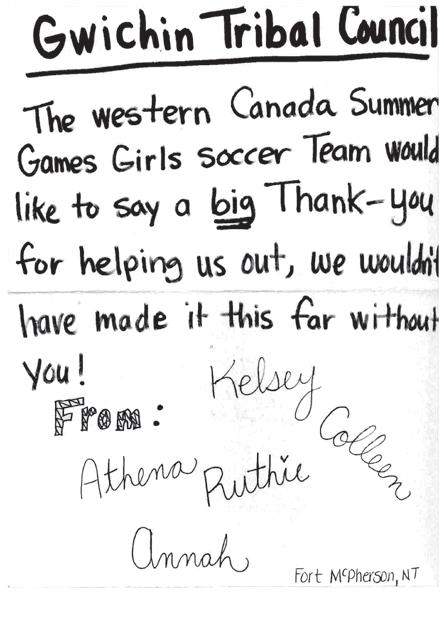 Gwichin Tribal Council
The western Canada Summer
Games Girls soccer Team would
like to say a big Thank-you
for helping us out, we wouldn't
have made it this far without
you!
From:
Kelsey
Colleen
Athena
Ruthie
Annah
Fort McPherson, NT